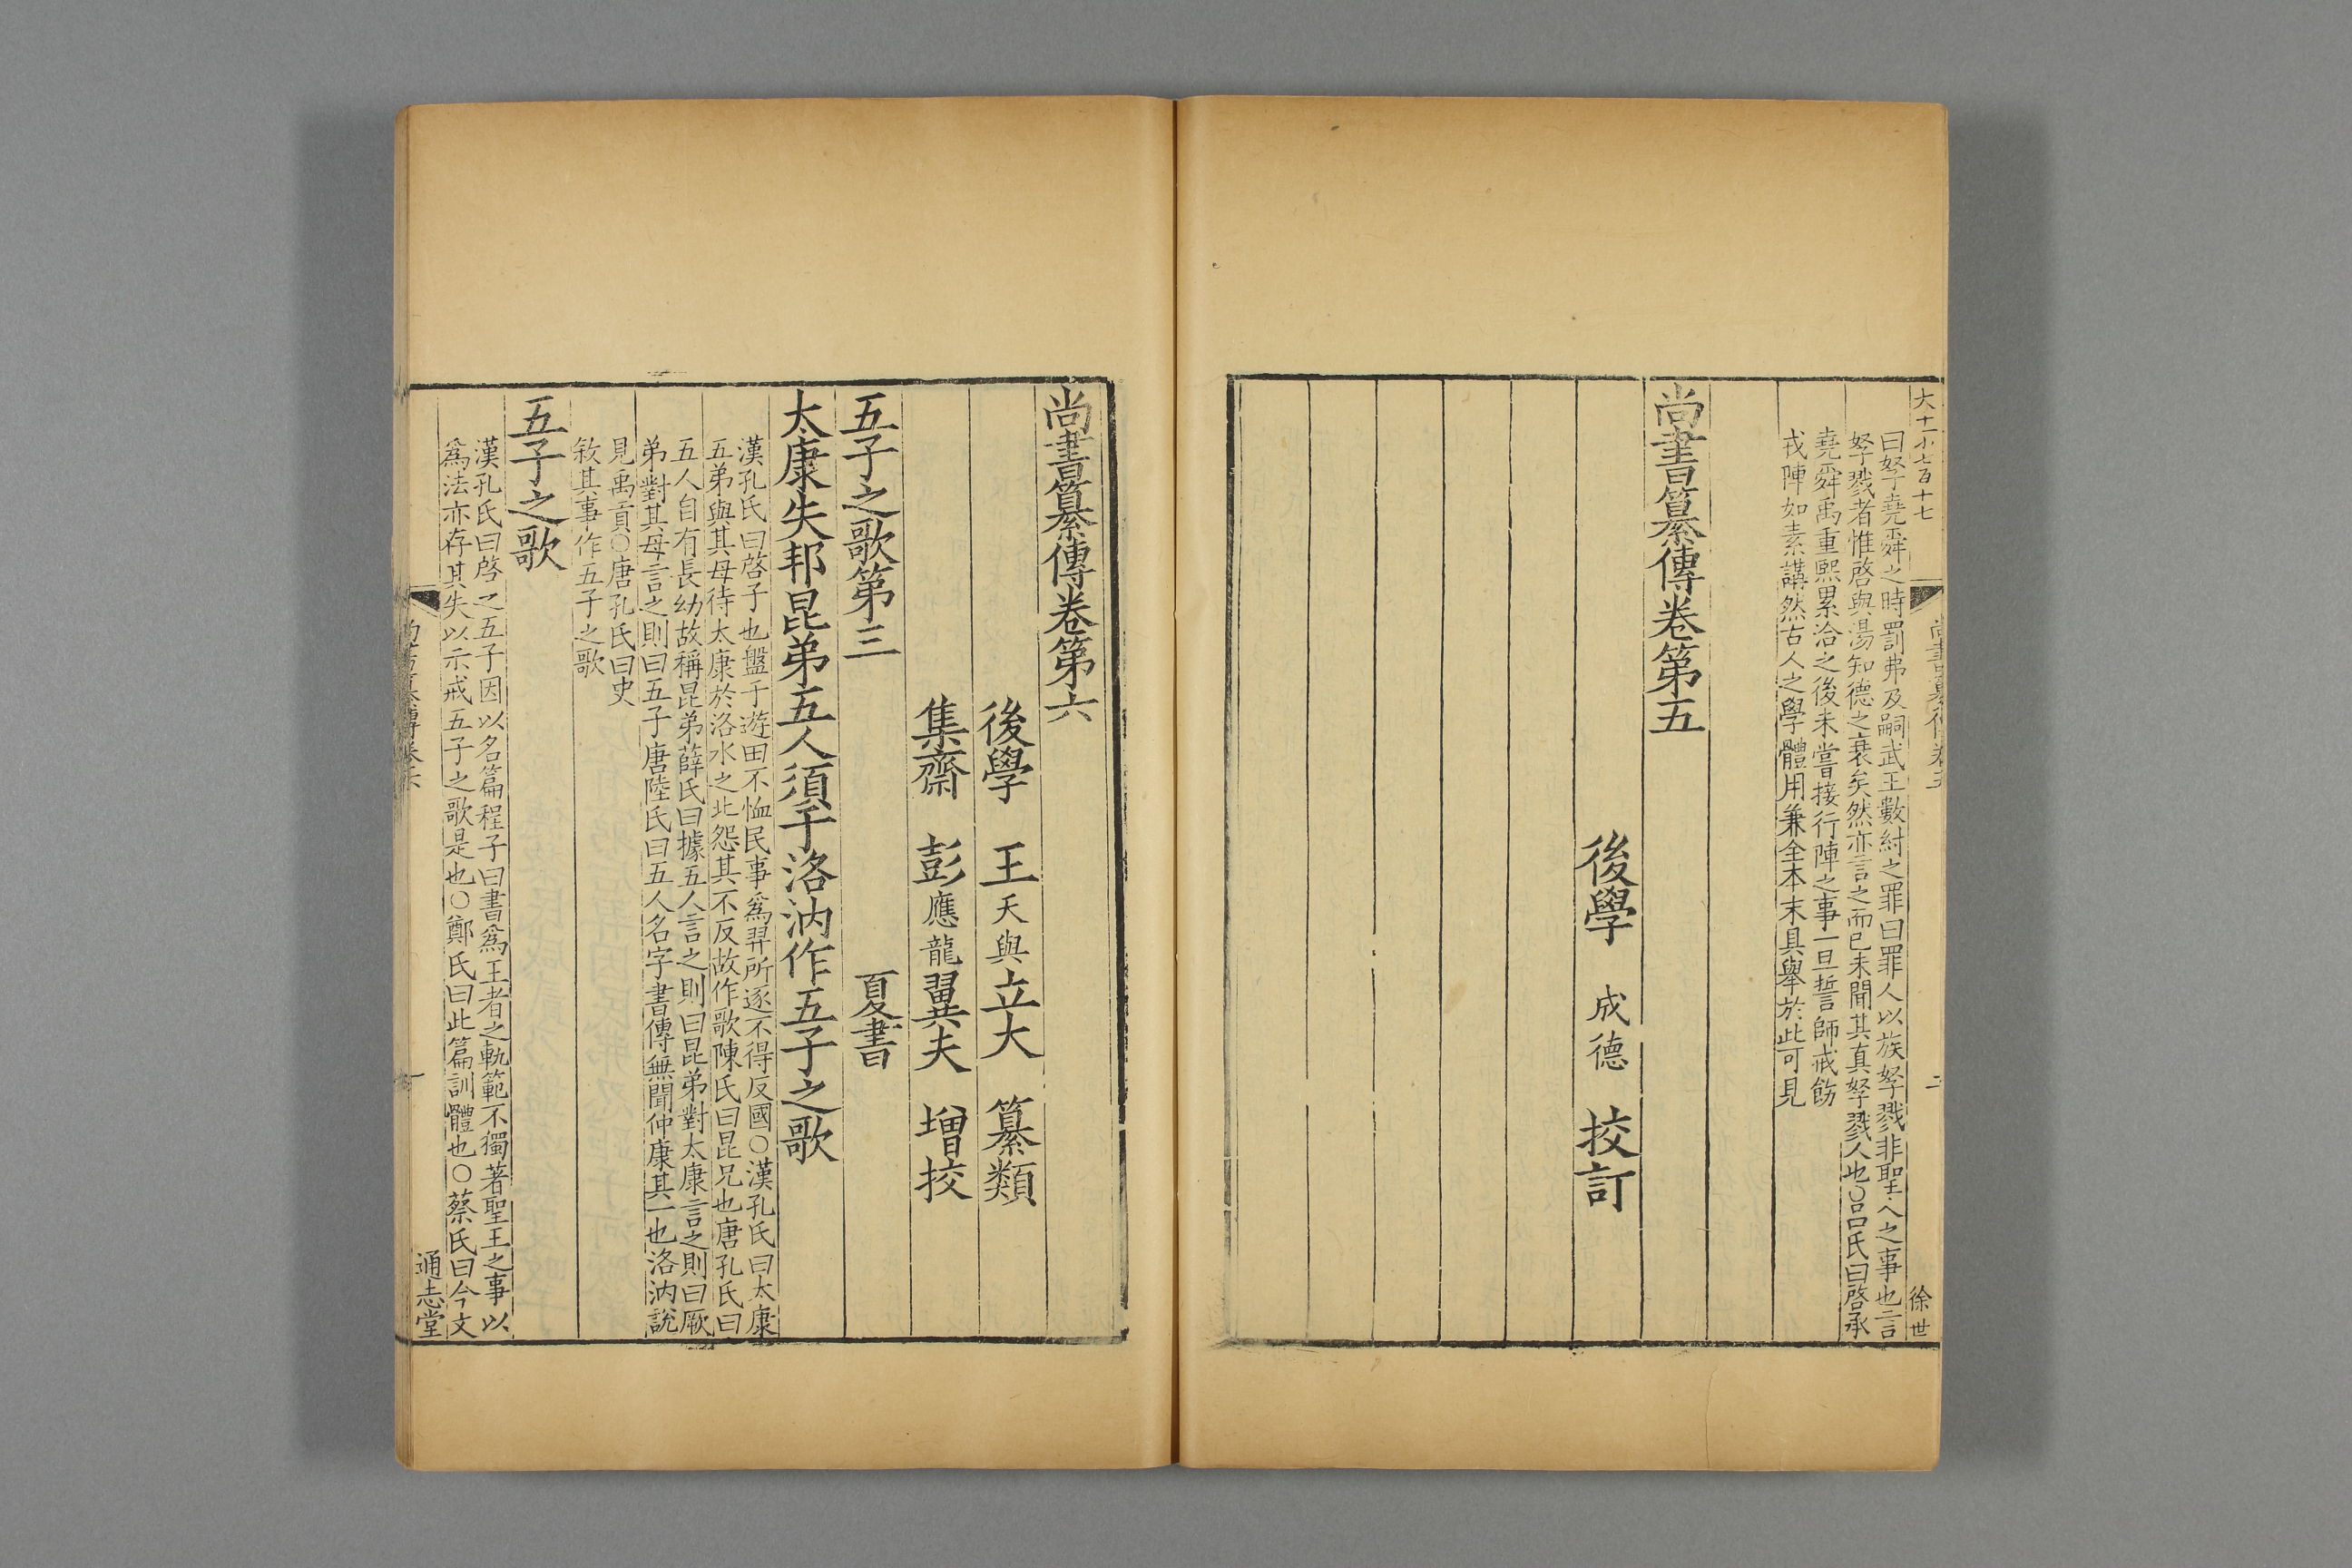 大十一小七百十七
尚書纂傳卷五
二
徐世
曰孥堯舜之時罰弗及嗣武王數紂之罪曰罪人以族孥戮非聖人之事也言
孥戮者惟啓與湯知德之衰矣然亦言之而已未聞其真孥戮人也○呂氏曰啓承
堯舜禹重熙累洽之後未嘗接行陣之事一旦誓師戒飭
戎陣如素講然古人之學體用兼全本末具舉於此可見
尚書纂傳卷第五
後學 成德 挍訂
尚書纂傳卷第六
後學 王天與立大 纂類
集齋 彭應龍翼夫 增挍
五子之歌第三 夏書
太康失邦昆弟五人須于洛汭作五子之歌
漢孔氏曰啓子也盤于遊田不恤民事爲羿所逐不得反國○漢孔氏曰太康
五弟與其母待太康於洛水之北怨其不反故作歌陳氏曰昆兄也唐孔氏曰
五人自有長幼故稱昆弟薛氏曰據五人言之則曰昆弟對太康言之則曰厥
弟對其母言之則曰五子唐陸氏曰五人名字書傳無聞仲康其一也洛汭說
見禹貢○唐孔氏曰史
敘其事作五子之歌
五子之歌
漢孔氏曰啓之五子因以名篇程子曰書爲王者之軌範不獨著聖王之事以
爲法亦存其失以示戒五子之歌是也○鄭氏曰此篇訓體也○蔡氏曰今文
尚書纂傳卷六
一
通志堂